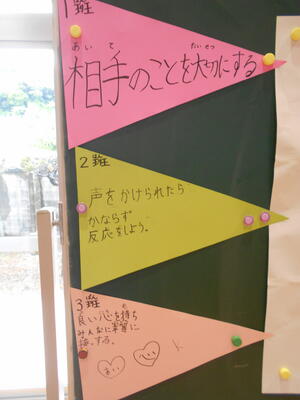 1班
あいて たいせつ
相手のことを大切にする
2班
声をかけられたら
かならず
反応をしよう。
3班
良い心を持ち
みんなに
する。
心